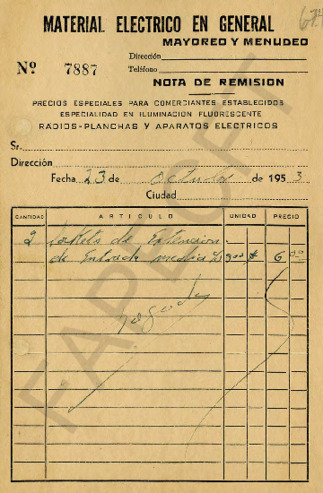 MATERIAL ELECTRICO EN GENERAL
MAYOREO Y MENUDEO
Dirección
Nº 7887
Teléfono
NOTA DE REMISION
PRECIOS ESPECIALES PARA COMERCIANTES ESTABLECIDOS
ESPECIALIDAD EN ILUMINACION FLUORESCENTE
RADIOS-PLANCHAS Y APARATOS ELECTRICOS
Sr.
Dirección
Fecha 23 de octubre de 1953
Ciudad
CANTIDAD ARTICULO UNIDAD PRECIO
2 de Extencion
de media 3.00 $ 6.00
Pagado